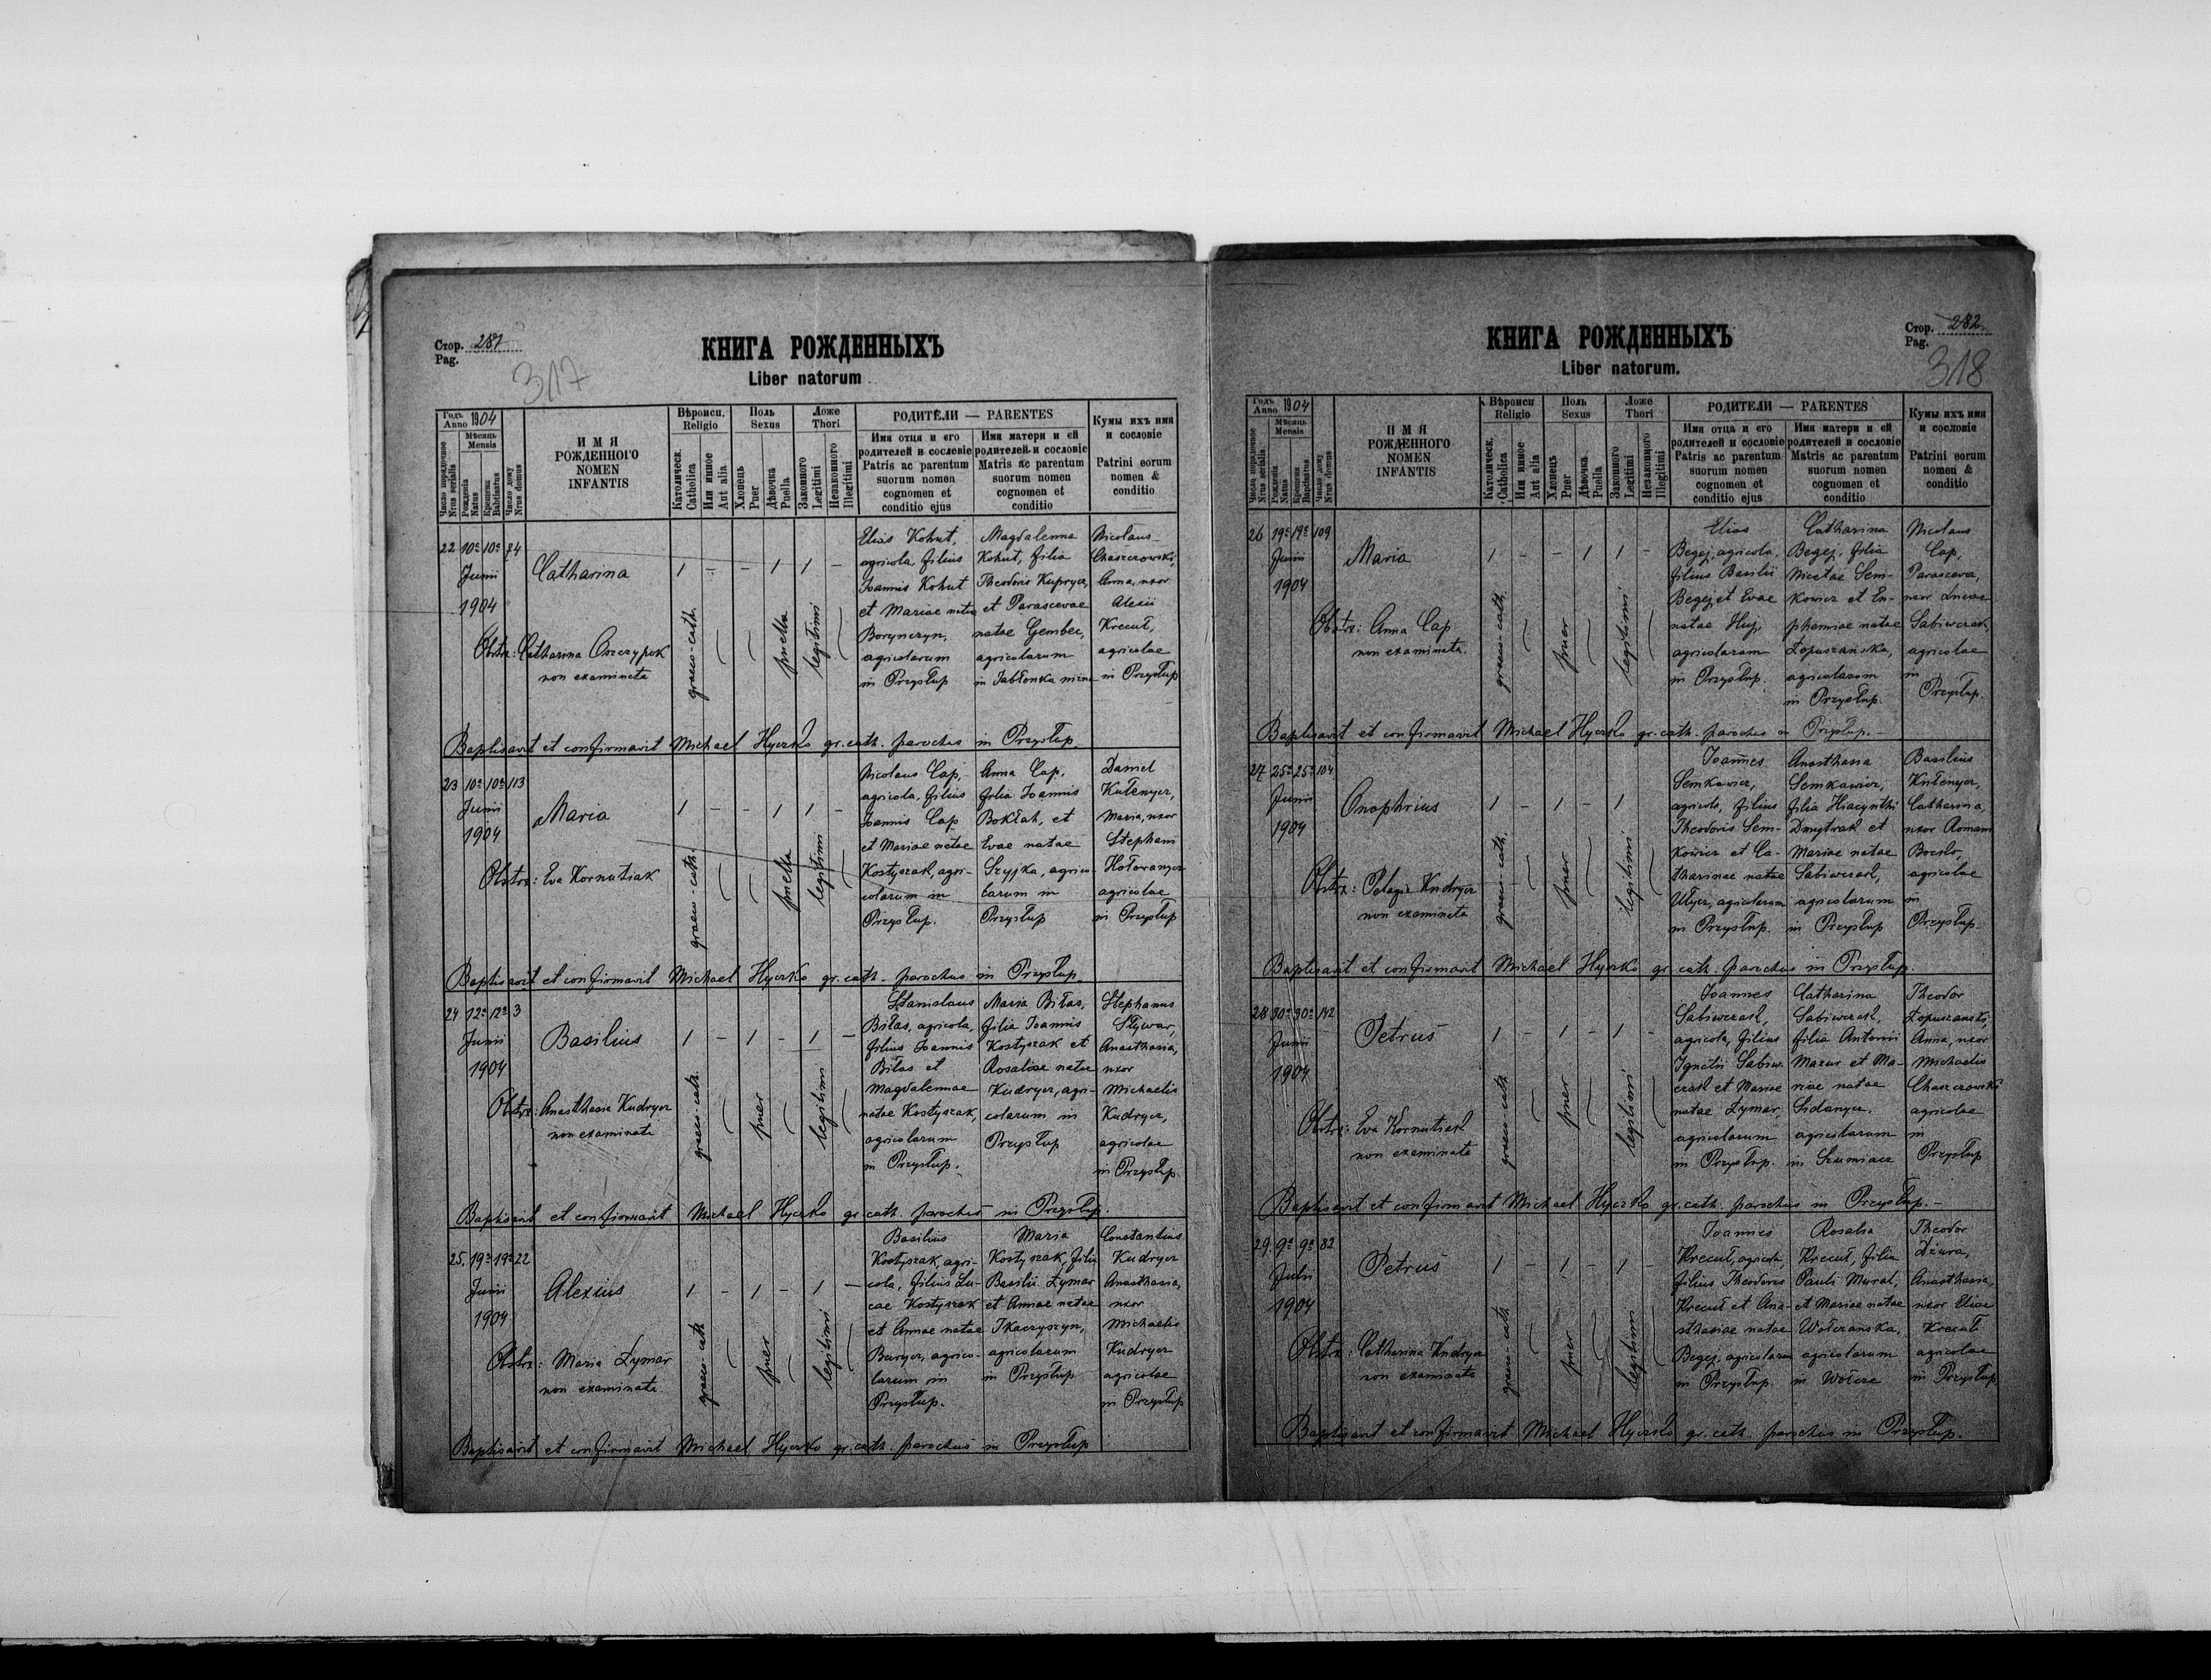 Стор. 281
Pag.
317
КНИГА РОЖДЕННЫХЪ
Liber natorum
Годъ Anno 1904
Мѣсяць Mensis
Число порядочное Nrus serialis
Рожденія Natus
Крещенія Babtisatus
Число дому Nrus domus
ИМЯ
РОЖДЕННОГО
NOMEN
INFANTIS
Вѣроиси. Religio
Католическ. Catholica
Или инное Aut alia
Поль Sexus
Хлопець Puer
Дѣвочка Puella
Ложе Thori
Законного Legitimi
Незаконного Illegitimi
РОДИТЕЛИ — PARENTES
Имя отца и его
родителей и сословіе
Patris ac parentum
suorum nomen
cognomen et
conditio ejus
Имя матери и ей
родителей и сословіе
Matris ac parentum
suorum nomen
cognomen et
conditio
Кумы ихъ имя
и сословіе
Patrini eorum
nomen &
conditio
22 10a 10a 24
Junii
1904
Catharina
1 - - 1 1 -
graeco-cath.
puella
legitimi
Obstr: Catharina Oszczypek
non examinata
Elias Kohut,
agricola, filius
Joannis Kohut
et Mariae natae
Borynczyn,
agricolarum
in Przysłup
Magdalenna
Kohut, filia
Theodoris Kupryez,
et Parascevae
natae Gembec,
agricolarum
in Jabłonka nizna
Nicolaus
Chaszczowski,
Anna, uxor
Alexii
Krecuł,
agricolae
in Przysłup
Baptisavit et confirmavit Michael Hyczko gr. cath. parochus in Przysłup
23 10a 10a 113
Junii
1904
Maria
1 - - 1 1 -
graeco-cath.
puella
legitimi
Obstr: Eva Kornutiak
Nicolaus Cap,
agricola, filius
Joannis Cap
et Mariae natae
Kostyszak, agri-
colarum in
Przysłup.
Anna Cap,
filia Joannis
Bokłah, et
Evae natae
Szyjka, agrico
larum in
Przysłup
Daniel
Kułenycz,
Maria, uxor
Stephani
Hołowanycz
agricolae
in Przysłup
Baptisavit et confirmavit Michael Hyczko gr. cath. parochus in Przysłup
24 12a 12a 3
Junii
1904
Basilius
1 - 1 - 1 -
graeco-cath.
puer
legitimi
Obstr: Anasthasia Kudrycz
non examinata
Stanislaus
Biłas, agricola,
filius Joannis
Biłas et
Magdalennae
natae Kostyszak,
agricolarum
in Przysłup.
Maria Biłas,
filia Joannis
Kostyszak et
Rosaliae natae
Kudrycz, agri-
colarum in
Przysłup
Stephanus
Stywar,
Anasthasia,
uxor
Michaelis
Kudrycz,
agricolae
in Przysłup
Baptisavit et confirmavit Michael Hyczko gr. cath. parochus in Przysłup.
25. 19a 19a 22
Junii
1904
Alexius
1 - 1 - 1 -
graeco-cath
puer
legitimi
Obstr: Maria Łymar
non examinata
Basilius
Kostyszak, agri-
cola, filius Lu-
cae Kostyszak
et Annae natae
Burycz, agrico-
larum in
Przysłup.
Maria
Kostyszak, filia
Basilii Łymar
et Annae natae
Tkaczyszyn,
agricolarum
in Przysłup
Constantius
Kudrycz
Anasthasia,
uxor
Michaelis
Kudrycz
agricolae
in Przysłup
Baptisavit et confirmavit Michael Hyczko gr. cath. parochus in Przysłup
Стор. 282
Pag.
318
КНИГА РОЖДЕННЫХЪ
Liber natorum.
Годъ Anno 1904
Мѣсяць Mensis
Число порядочное Nrus serialis.
Рожденія Natus
Крещенія Baptisatus
Число дому Nrus domus
ИМЯ
РОЖДЕННОГО
NOMEN
INFANTIS
Вѣроиси Religio
Католическ. Catholica
Или инное Aut alia
Поль Sexus
Хлопецъ Puer
Дѣвочка Puella
Ложе Thori
Законного Legitimi
Незаконного Illegitimi
РОДИТЕЛИ — PARENTES
Имя отца и его
родителей и сословіе
Patris ac parentum
suorum nomen
cognomen et
conditio ejus
Имя матери и ей
родителей и сословіе
Matris ac parentum
suorum nomen
cognomen et
conditio
Кумы ихъ имя
и сословіе
Patrini eorum
nomen &
conditio
26 19a 19a 109
Junii
1904
Maria
1 - - 1 1 -
graeco-cath.
puer
legitimi
Obstr: Anna Cap
non examinata.
Elias
Begej, agricola,
filius Basilii
Begej et Evae
natae Huj,
agricolarum
in Przysłup.
Catharina
Begej, filia
Nicetae Sem-
kowicz et Eu-
phemiae natae
Łopuszańska,
agricolarum
in Przysłup.
Nicolaus
Cap,
Parasceva,
uxor Lucae
Sabiwczak,
agricolae
in
Przysłup.
Baptisavit et confirmavit Michael Hyczko gr. cath. parochus in Przysłup.
27. 25a 25a 104
Junii
1904
Onophrius
1 - 1 - 1
graeco-cath.
puer
legitimi
Obstr: Pelagia Kudrycz
non examinata
Joannes
Semkowicz,
agricola, filius
Theodoris Sem-
kowicz et Ca-
tharinae natae
Ulycz, agricolarum
in Przysłup.
Anasthasia
Semkowicz,
filia Hiacynthi
Dmytrak et
Mariae natae
Sabiwczak,
agricolarum
in Przysłup
Basilius
Kułenycz,
Catharina,
uxor Romani
Boczko,
agricolae
in
Przysłup
Baptisavit et confirmavit Michael Hyczko gr. cath. parochus in Przysłup.
28 30a 30a 142
Junii
1904
Petrus
1 - 1 - 1 -
graeco-cath
puer
legitimi
Obstr: Eva Kornutiak
non examinata
Joannes
Sabiwczak,
agricola, filius
Ignatii Sabiw-
czak et Mariae
natae Łymar,
agricolarum
in Przysłup.
Catharina
Sabiwczak,
filia Antonii
Mazur et Ma-
riae natae
Sidanycz.
agricolarum
in Szumiacz
Theodor
Łopuszański,
Anna, uxor
Michaelis
Chaszczowski
agricolae
in
Przysłup
Baptisavit et confirmavit Michael Hyczko gr. cath. parochus in Przysłup.-
29. 9a 9a 82
Julii
1904
Petrus
1 - 1 - 1 -
graeco-cath
puer
legitimi
Obstr: Catharina Kudrycz
non examinata
Joannes
Krecuł, agricola,
filius Theodoris
Krecuł et Ana-
sthasiae natae
Begej, agricolarum
in Przysłup.
Rosalia
Krecuł, filia
Pauli Mural,
et Mariae natae
Wołczańska,
agricolarum
in Wołcze
Theodor
Dżura,
Anasthasia,
uxor Eliae
Krecuł
agricolae
in Przysłup
Baptisavit et confirmavit Michael Hyczko gr. cath. parochus in Przysłup.